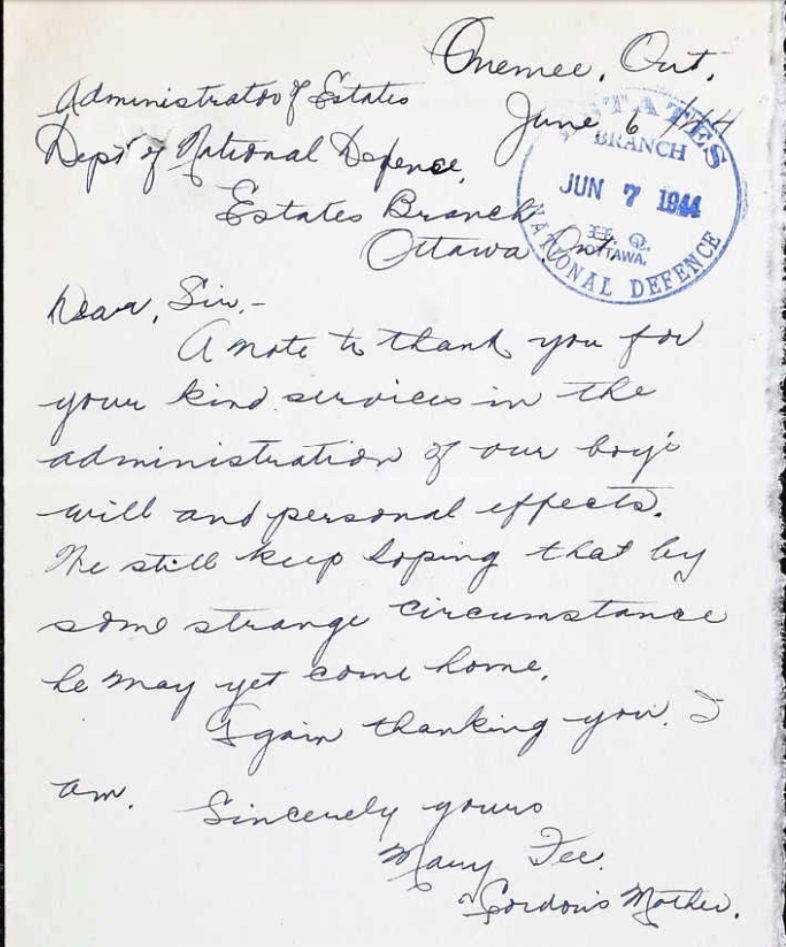 Omemee, Ont.
June 6 /44
Administrator of Estates
Dept of National Defence,
Estates Branch
Ottawa, Ont.
ESTATES
BRANCH
JUN 7 1944
H. Q.
OTTAWA.
NATIONAL DEFENCE
Dear, Sir,-
A note to thank you for
your kind services in the
administration of our boy's
will and personal effects.
We still keep hoping that by
some strange circumstance
he may yet come home.
Again thanking you. I
am.
Sincerely yours
Mary Fee.
Gordon's Mother.